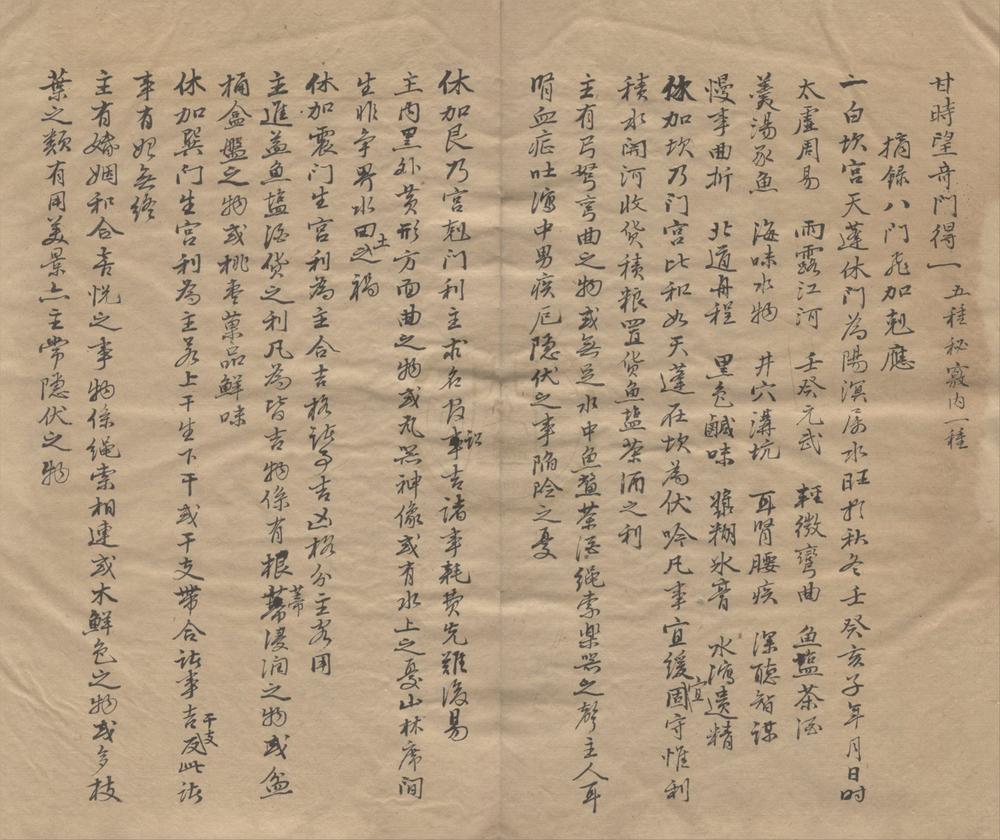 甘時望奇門得一 五種秘竅內一種
摘錄八門飛加剋應
一白坎宮天蓬休門為陽溟屬水旺於秋冬壬癸亥子年月日时
太虛周易 雨露江河 壬癸元武 輕微彎曲 魚塩茶酒
羹湯豕魚 海味水物 井穴溝坑 耳腎腰疾 深聰智謀
慢事曲折 北道舟程 黑色鹹味 糊氷膏 水瀉遗精
休加坎乃門宮比和如天蓬在坎為伏吟凡事宜緩宜固守惟利
積水開河收货積粮置货魚塩茶酒之利
主有弓弩彎曲之物或無足水中魚蓋茶酒繩索樂器之聲主人耳
腎血症吐瀉中男疾厄隐伏之事陷险之憂
休加艮乃宮剋門利主求名投訟事吉諸事耗费先難後易
主內黑外黄形方面曲之物或瓦器神像或有水上之憂山林席间
生非争界水田土之禍
休加震門生宮利為主合吉格諸事吉凶格分主客用
主進益魚塩酒货之利凡為皆吉物係有根蒂浸润之物或盆
桶盒盤之物或桃枣菓品鮮味
休加巽門生宮利為主若上干生下干或干支帶合诸事吉干支反此诸
事有始無终
主有婚姻和合喜悦之事物係绳索相連或木鮮色之物或多枝
葉之類有用美景亦主常隐伏之物